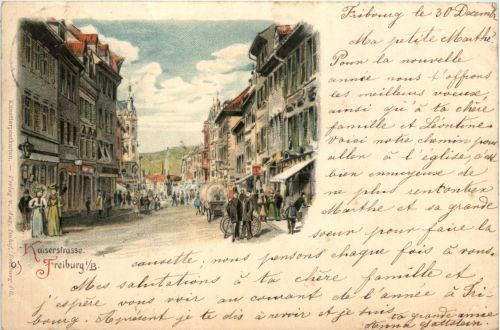 Fribourg le 30 Decemb
Ma petite Marthe
Pour la nouvelle
année nous t'offrons
tes meilleurs voeux,
ainsi qu'à ta chère
famille et Léontine
voici notre chemin pour
aller à l'église, c'est
bien ennuyeux de
ne plus rencontrer
Marthe et sa grande
soeur pour faire la
causette; nous pensons chaque fois à vous.
Mes salutations à ta chère famille et
j'espère vous voir au courant de l'année à Fri-
bourg. Apresent je te dis à revoir et je suis
ta grande amie
Anna
Kaiserstrasse.
Freiburg i/B.
Künstlerpostkarten. — Verlag v.